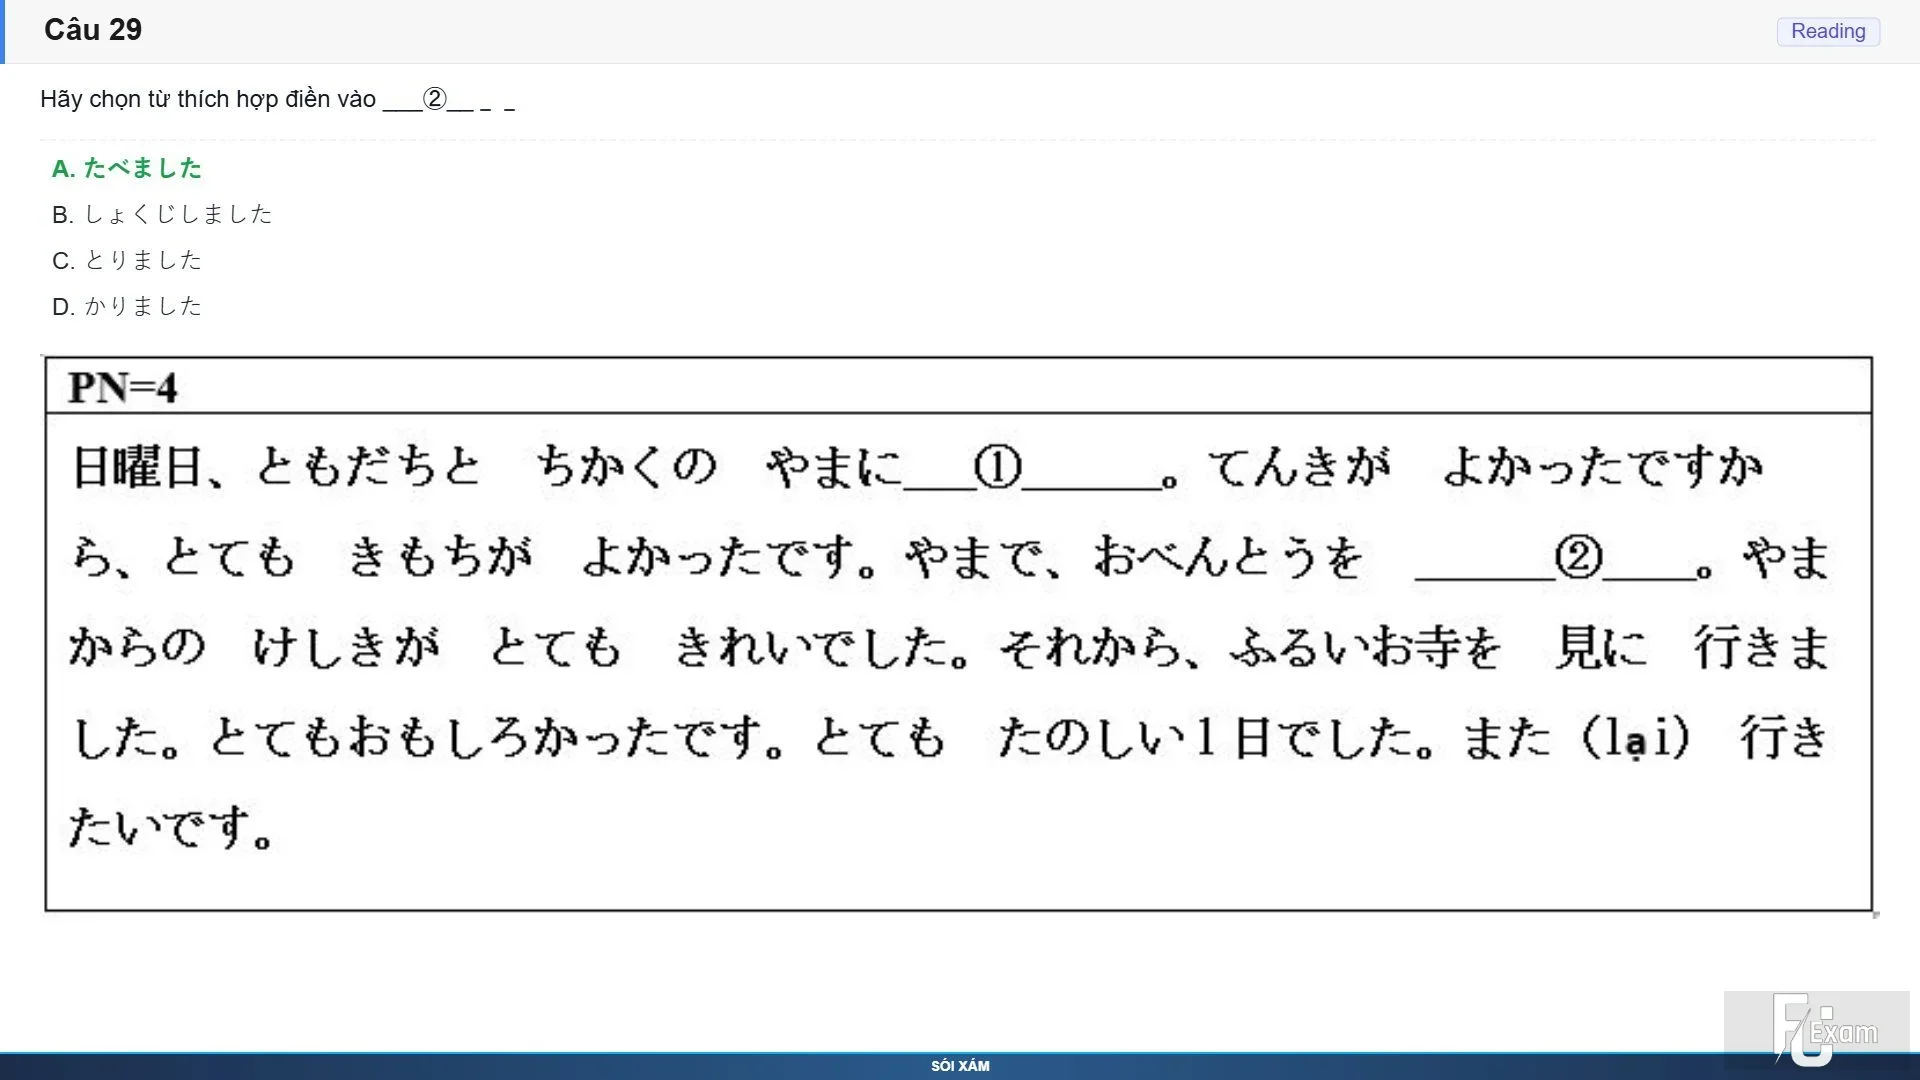 Câu 29
Reading
Hãy chọn từ thích hợp điền vào ___②__ _ _
A. たべました
B. しょくじしました
C. とりました
D. かりました
PN=4
日曜日、ともだちと ちかくの やまに___①______。てんきが よかったですか
ら、とても きもちが よかったです。やまで、おべんとうを ______②____。やま
からの けしきが とても きれいでした。それから、ふるいお寺を 見に 行きま
した。とてもおもしろかったです。とても たのしい1日でした。また（lại） 行き
たいです。
FU Exam
SÓI XÁM